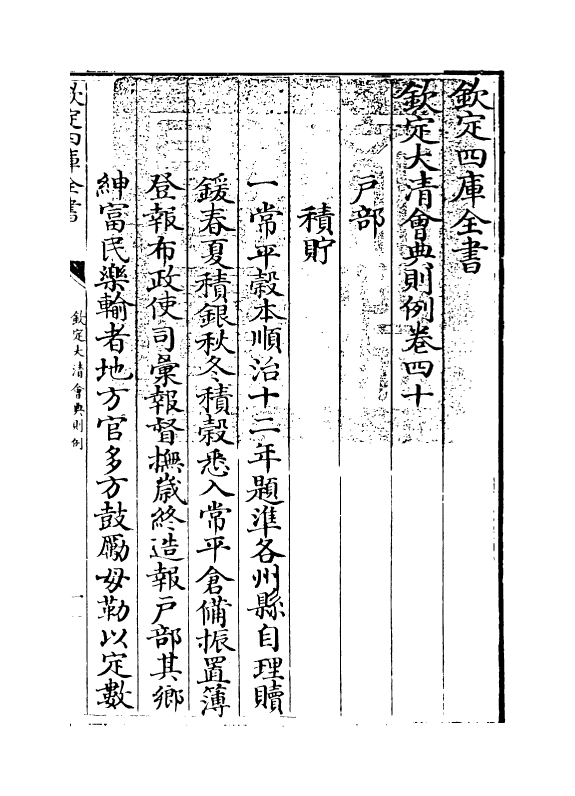 欽定四庫全書
欽定大清會典則例卷四十
戶部
積貯
一常平穀本順治十二年題準各州縣自理贖
鍰春夏積銀秋冬積穀悉入常平倉備振置簿
登報布政使司彙報督撫歲終造報戶部其鄉
紳富民樂輸者地方官多方鼓勵毋勒以定數
欽定四庫全書
欽定大清會典則例
一